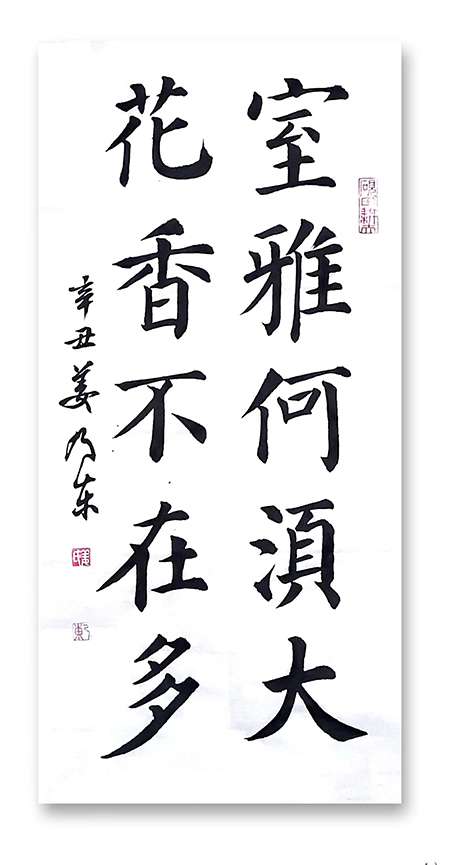 室雅何湏大
花香不在多
辛丑姜乃东